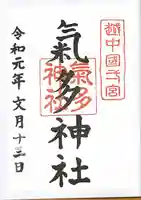 越中國一宮
氣多神社
氣多
神社
令和元年文月十三日